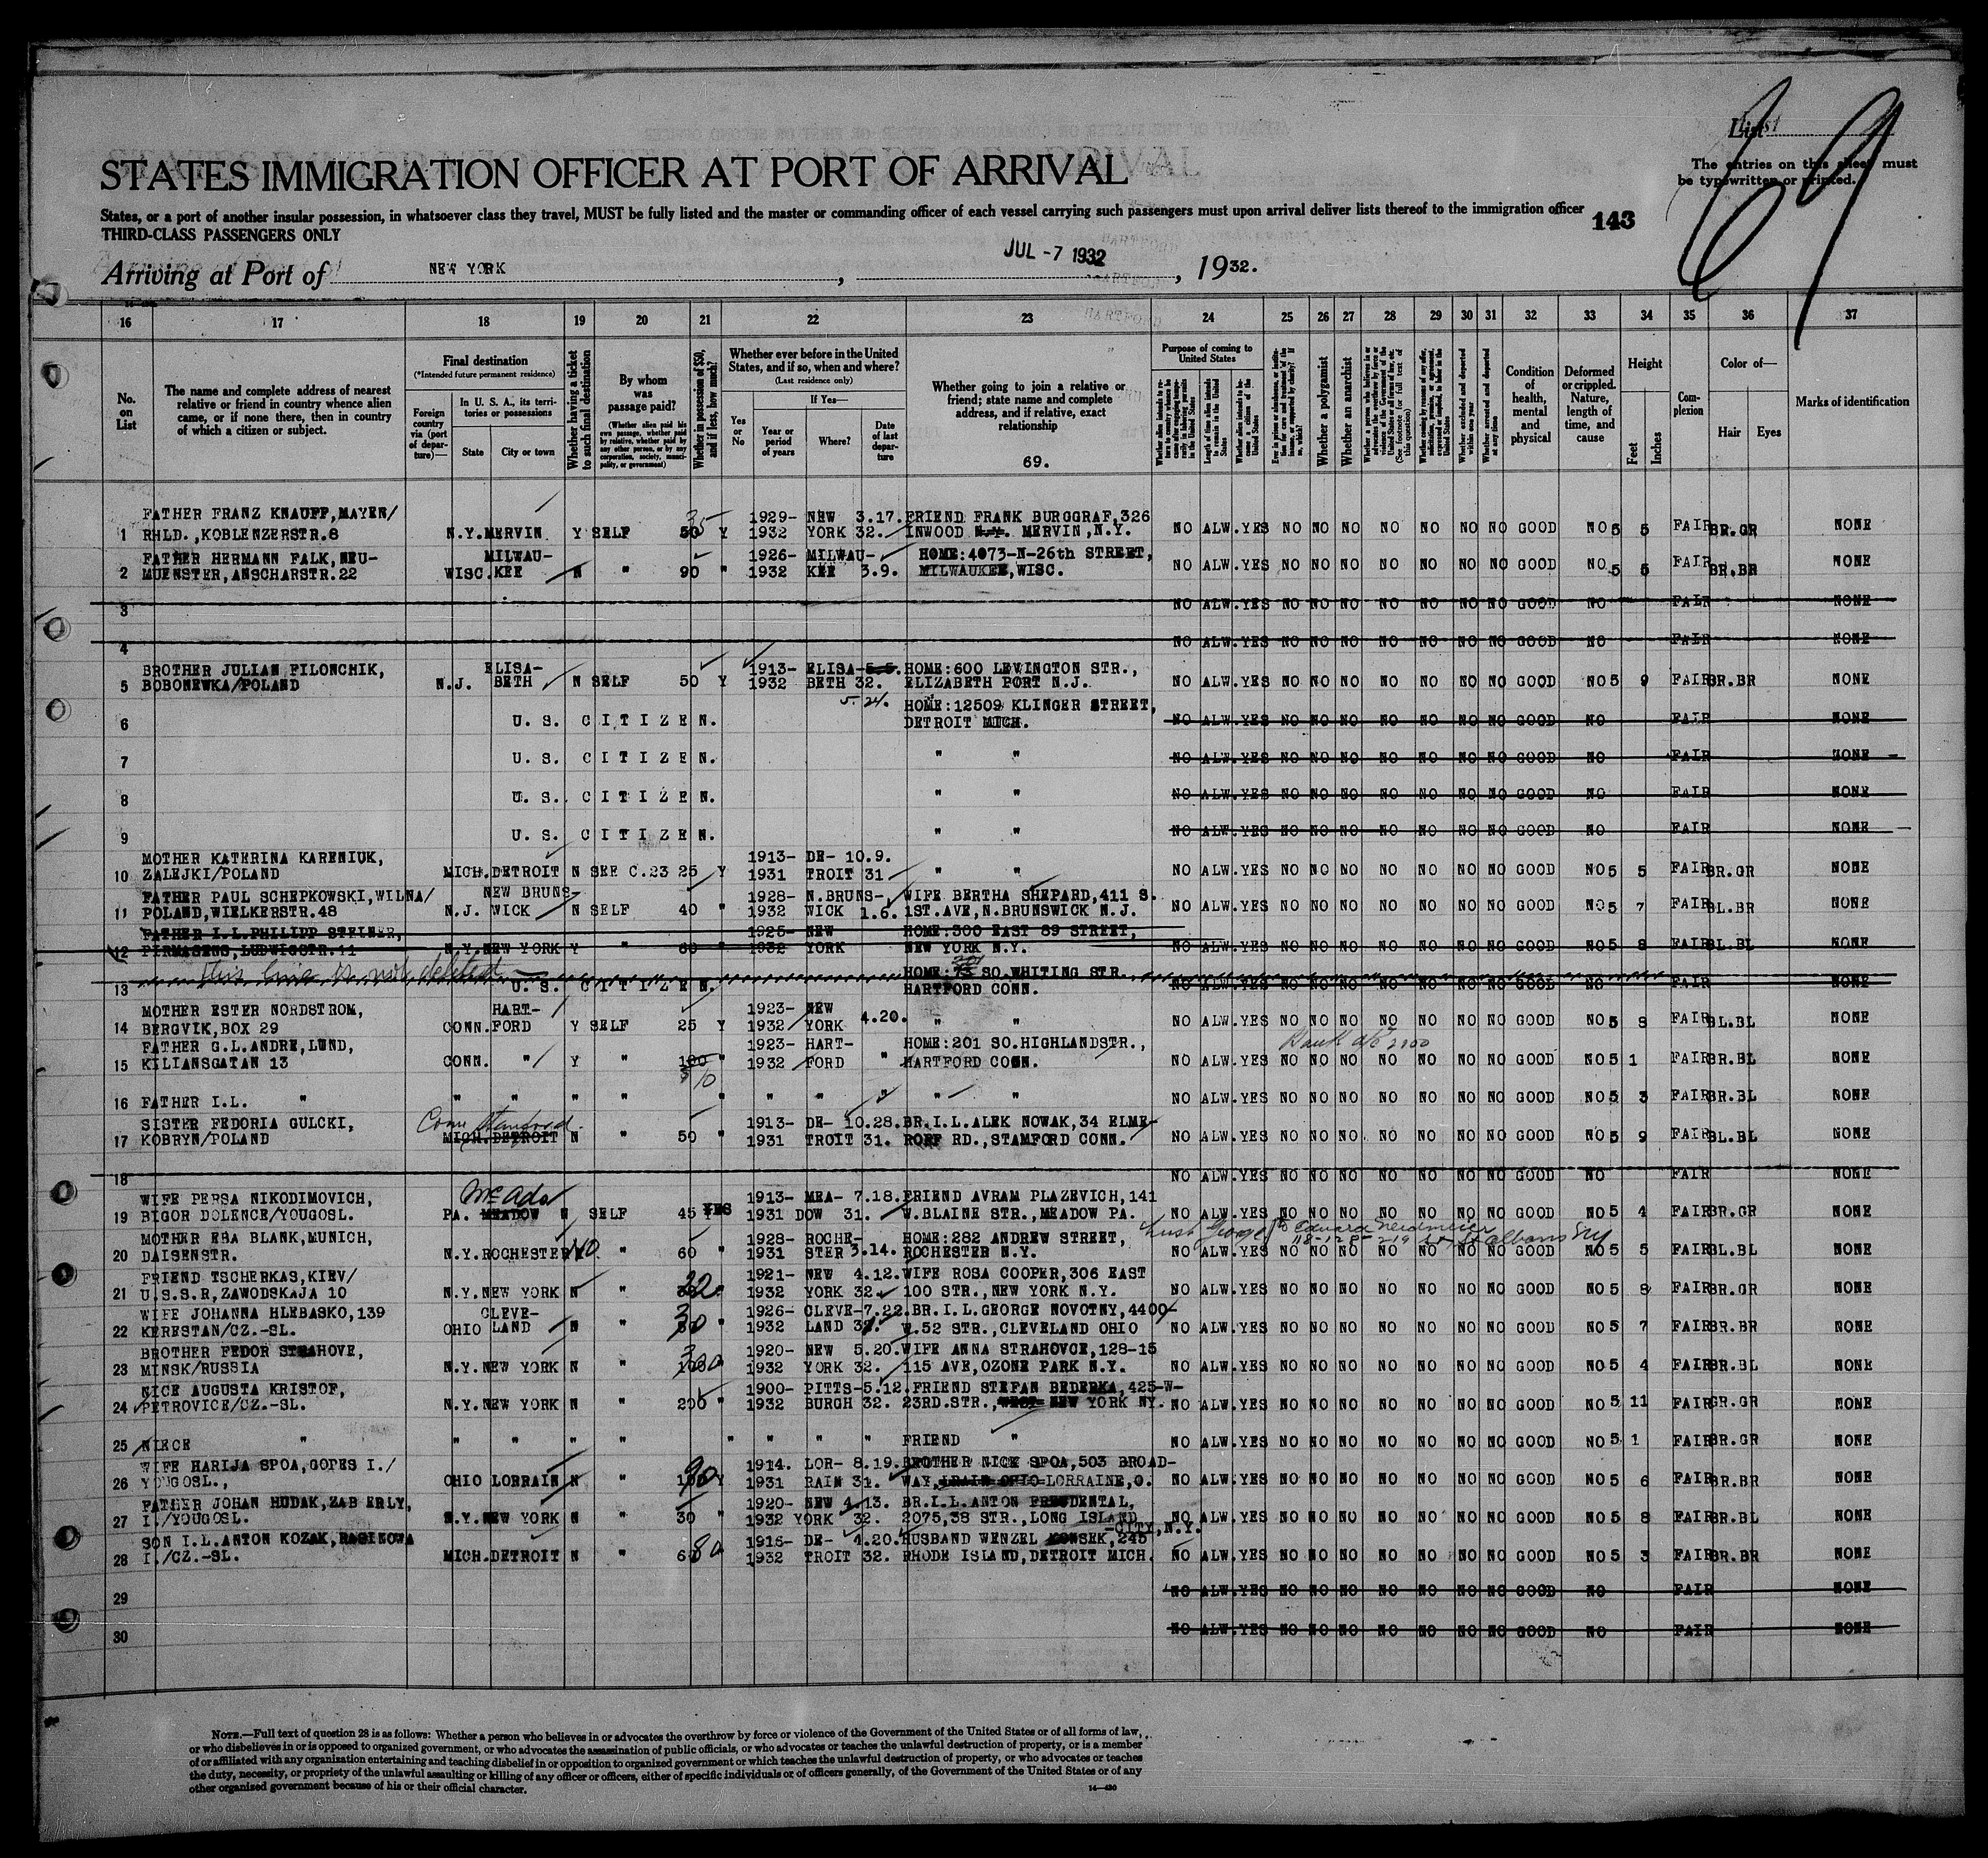 List
The entries on this sheet must
be typewritten or printed.
69
STATES IMMIGRATION OFFICER AT PORT OF ARRIVAL
States, or a port of another insular possession, in whatsoever class they travel, MUST be fully listed and the master or commanding officer of each vessel carrying such passengers must upon arrival deliver lists thereof to the immigration officer
143
THIRD-CLASS PASSENGERS ONLY
Arriving at Port of NEW YORK, JUL -7 1932, 1932.
16 17 18 19 20 21 22 23 24 25 26 27 28 29 30 31 32 33 34 35 36 37
No. on List
The name and complete address of nearest relative or friend in country whence alien came, or if none there, then in country of which a citizen or subject.
Final destination
(*Intended future permanent residence)
Foreign country via (port of departure)—
In U. S. A., its territories or possessions
State City or town
Whether having a ticket to such final destination
By whom was passage paid?
(Whether alien paid his own passage, whether paid by relative, whether paid by any other person, or by any corporation, society, municipality, or government)
Whether in possession of $50, and if less, how much?
Whether ever before in the United States, and if so, when and where?
(Last residence only)
Yes or No
If Yes—
Year or period of years
Where?
Date of last departure
Whether going to join a relative or friend; state name and complete address, and if relative, exact relationship
69.
Purpose of coming to United States
Length of time alien intends to remain in the United States
Whether alien intends to become a citizen of the United States
Whether a polygamist
Whether an anarchist
Whether arrested and deported at any time
Condition of health, mental and physical
Deformed or crippled. Nature, length of time, and cause
Height
Feet Inches
Complexion
Color of—
Hair Eyes
Marks of identification
FATHER FRANZ KNAUFF,MAYEN/ 35 1929- NEW 3.17. FRIEND FRANK BURGGRAF,326
1 RHLD.,KOBLENZERSTR.8 N.Y. MERVIN Y SELF 50 Y 1932 YORK 32. INWOOD N.Y. MERVIN,N.Y. NO ALW. YES NO NO NO NO NO NO NO GOOD NO 5 5 FAIR BR.GR NONE
FATHER HERMANN FALK,NEU- MILWAU- 1926- MILWAU- HOME:4073-N-26th STREET,
2 MUENSTER,ANSCHARSTR.22 WISC. KEE N " 90 " 1932 KEE 3.9. MILWAUKEE,WISC. NO ALW. YES NO NO NO NO NO NO NO GOOD NO 5 5 FAIR BR.BR NONE
3 NO ALW. YES NO NO NO NO NO NO NO GOOD NO FAIR NONE
4 NO ALW. YES NO NO NO NO NO NO NO GOOD NO FAIR NONE
BROTHER JULIAN FILONCHIK, ELISA- 1913- ELISA- 5.5. HOME:600 LEVINGTON STR.,
5 BOBONEWKA/POLAND N.J. BETH N SELF 50 Y 1932 BETH 32. ELIZABETH PORT N.J. NO ALW. YES NO NO NO NO NO NO NO GOOD NO 5 9 FAIR BR.BR NONE
5. 24. HOME:12509 KLINGER STREET,
6 U. S. C I T I Z E N. DETROIT MICH. NO ALW. YES NO NO NO NO NO NO NO GOOD NO FAIR NONE
7 U. S. C I T I Z E N. " " NO ALW. YES NO NO NO NO NO NO NO GOOD NO FAIR NONE
8 U. S. C I T I Z E N. " " NO ALW. YES NO NO NO NO NO NO NO GOOD NO FAIR NONE
9 U. S. C I T I Z E N. " " NO ALW. YES NO NO NO NO NO NO NO GOOD NO FAIR NONE
MOTHER KATERINA KARENIUK, 1913- DE- 10.9.
10 ZALEJKI/POLAND MICH. DETROIT N SEE C.23 25 Y 1931 TROIT 31 " " NO ALW. YES NO NO NO NO NO NO NO GOOD NO 5 5 FAIR BR.GR NONE
FATHER PAUL SCHEPKOWSKI,WILNA/ NEW BRUNS- 1928- N.BRUNS- WIFE BERTHA SHEPARD,411 S.
11 POLAND,WIELKERSTR.48 N.J. WICK N SELF 40 " 1932 WICK 1.6. 1ST.AVE,N.BRUNSWICK N.J. NO ALW. YES NO NO NO NO NO NO NO GOOD NO 5 7 FAIR BL.BR NONE
FATHER I.L.PHILIPP STEINER, 1925- NEW HOME:300 EAST 89 STREET,
12 PIRMASENS,LUDWIGSTR.11 N.Y. NEW YORK Y " 60 " 1932 YORK NEW YORK N.Y. NO ALW. YES NO NO NO NO NO NO NO GOOD NO 5 8 FAIR BL.BL NONE
This line is not deleted HOME: 201 SO.WHITING STR.
13 U. S. C I T I Z E N. HARTFORD CONN. NO ALW. YES NO NO NO NO NO NO NO GOOD NO FAIR NONE
MOTHER ESTER NORDSTROM, HART- 1923- NEW
14 BERGVIK,BOX 29 CONN. FORD Y SELF 25 Y 1932 YORK 4.20. " " NO ALW. YES NO NO NO NO NO NO NO GOOD NO 5 8 FAIR BL.BL NONE
FATHER G.L.ANDRE,LUND, 1923- HART- HOME:201 SO.HIGHLANDSTR., Bank a/c 2100
15 KILIANSGATAN 13 CONN. " Y " 100 " 1932 FORD " HARTFORD CONN. NO ALW. YES NO NO NO NO NO NO NO GOOD NO 5 1 FAIR BR.BL NONE
16 FATHER I.L. " " " " " " " " " " " NO ALW. YES NO NO NO NO NO NO NO GOOD NO 5 3 FAIR BR.BL NONE
SISTER FEDORIA GULCKI, Conn Stamford 1913- DE- 10.28. BR.I.L.ALEK NOWAK,34 ELME-
17 KOBRYN/POLAND MICH. DETROIT N " 50 " 1931 TROIT 31. ROFF RD.,STAMFORD CONN. NO ALW. YES NO NO NO NO NO NO NO GOOD NO 5 9 FAIR BL.BL NONE
18 NO ALW. YES NO NO NO NO NO NO NO GOOD NO FAIR NONE
WIFE PERSA NIKODIMOVICH, McAdo 1913- MEA- 7.18. FRIEND AVRAM PLAZEVICH,141
19 BIGOR DOLENCE/YOUGOSL. PA. MEADOW N SELF 45 YES 1931 DOW 31. W.BLAINE STR.,MEADOW PA. NO ALW. YES NO NO NO NO NO NO NO GOOD NO 5 4 FAIR BR.GR NONE
MOTHER EBA BLANK,MUNICH, 1928- ROCHE- HOME:282 ANDREW STREET, St Albans NY
20 DAISENSTR. N.Y. ROCHESTER NO " 60 " 1931 STER 3.14. ROCHESTER N.Y. NO ALW. YES NO NO NO NO NO NO NO GOOD NO 5 5 FAIR BL.BL NONE
FRIEND TSCHERKAS,KIEV/ 1921- NEW 4.12. WIFE ROSA COOPER,306 EAST
21 U.S.S.R,ZAWODSKAJA 10 N.Y. NEW YORK N " 22 " 1932 YORK 32. 100 STR.,NEW YORK N.Y. NO ALW. YES NO NO NO NO NO NO NO GOOD NO 5 8 FAIR BR.GR NONE
WIFE JOHANNA HLEBASKO,139 CLEVE- 1926- CLEVE- 7.22. BR.I.L.GEORGE NOVOTNY,4400-
22 KERESTAN/CZ.-SL. OHIO LAND N " 30 " 1932 LAND W.52 STR.,CLEVELAND OHIO NO ALW. YES NO NO NO NO NO NO NO GOOD NO 5 7 FAIR BR.BR NONE
BROTHER FEDOR STRAHOVE, 1920- NEW 5.20. WIFE ANNA STRAHOVCE,128-15
23 MINSK/RUSSIA N.Y. NEW YORK N " " 1932 YORK 32. 115 AVE,OZONE PARK N.Y. NO ALW. YES NO NO NO NO NO NO NO GOOD NO 5 4 FAIR BR.BL NONE
NICE AUGUSTA KRISTOF, 1900- PITTS- 5.12. FRIEND STEFAN BEDERKA,425-W-
24 PETROVICE/CZ.-SL. N.Y. NEW YORK N " 200 " 1932 BURGH 32. 23RD.STR., WEST NEW YORK NY. NO ALW. YES NO NO NO NO NO NO NO GOOD NO 5 11 FAIR GR.GR NONE
25 NIECE " " " " " " " " " FRIEND " NO ALW. YES NO NO NO NO NO NO NO GOOD NO 5 1 FAIR BR.GR NONE
WIFE HARIJA SPOA,GOPES I./ 1914. LOR- 8.19. BROTHER NICK SPOA,503 BROAD-
26 YOUGOSL., OHIO LORRAIN N " 90 Y 1931 RAIN 31. WAY, LORRAINE,O. NO ALW. YES NO NO NO NO NO NO NO GOOD NO 5 6 FAIR BR.BR NONE
FATHER JOHAN HUDAK,ZAB ERLY, 1920- NEW 4.13. BR.I.L.ANTON PRESDENTAL,
27 I./YOUGOSL. N.Y. NEW YORK N " 30 " 1932 YORK 32. 2075,38 STR.,LONG ISLAND NO ALW. YES NO NO NO NO NO NO NO GOOD NO 5 8 FAIR BR.BL NONE
-CITY,N.Y.
SON I.L.ANTON KOZAK,RAGIKOWA 1916- DE- 4.20. HUSBAND WENZEL KOWSEK,245
28 I./CZ.-SL. MICH. DETROIT N " 80 " 1932 TROIT 32. RHODE ISLAND,DETROIT MICH. NO ALW. YES NO NO NO NO NO NO NO GOOD NO 5 3 FAIR BR.BR NONE
29 NO ALW. YES NO NO NO NO NO NO NO GOOD NO FAIR NONE
30 NO ALW. YES NO NO NO NO NO NO NO GOOD NO FAIR NONE
NOTE.—Full text of question 28 is as follows: Whether a person who believes in or advocates the overthrow by force or violence of the Government of the United States or of all forms of law,
or who disbelieves in or is opposed to organized government, or who advocates the assassination of public officials, or who advocates or teaches the unlawful destruction of property, or is a member
of or affiliated with any organization entertaining and teaching disbelief in or opposition to organized government or which teaches the unlawful destruction of property, or who advocates or teaches
the duty, necessity, or propriety of the unlawful assaulting or killing of any officer or officers, either of specific individuals or of officers generally, of the Government of the United States or of any
other organized government because of his or their official character.
14—430